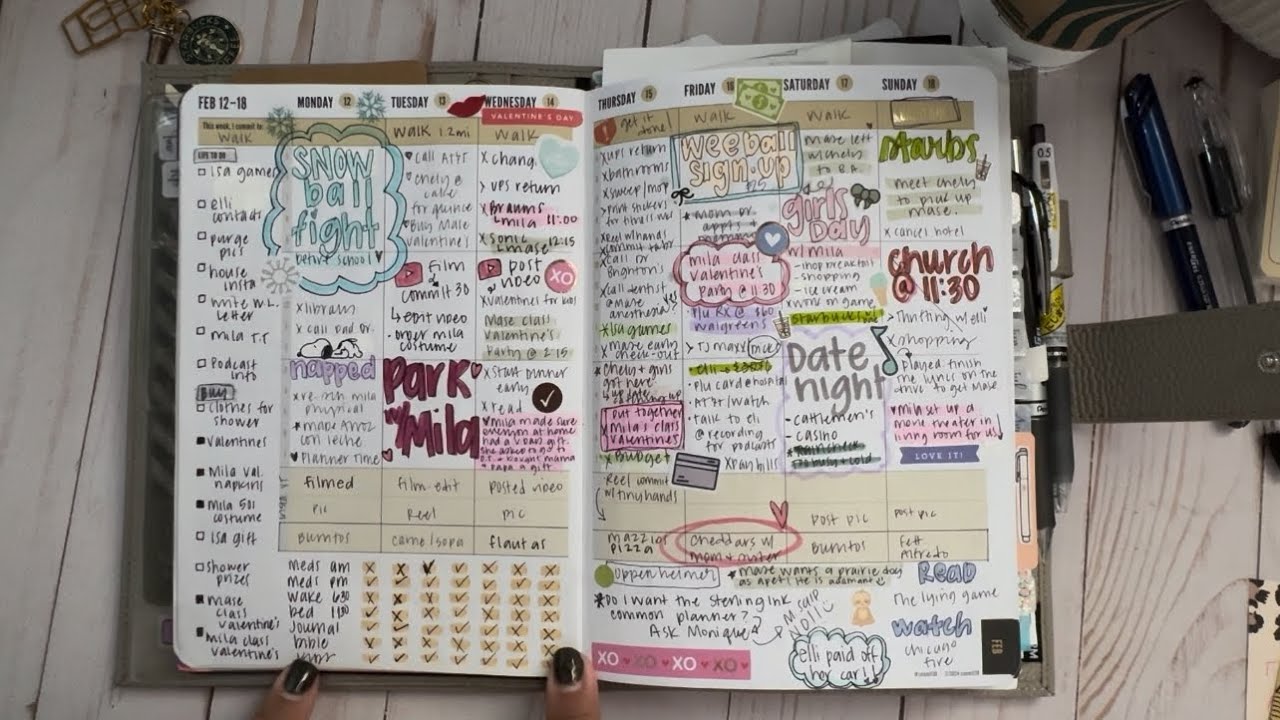 STARBUCKS
FEB 12-18
MONDAY 12
TUESDAY 13
WEDNESDAY 14
VALENTINE'S DAY
This week, I commit to:
Walk
Walk 1.2mi
Walk
LISTS TO DO
Isa games
elli
contacts
purge
pics
house
insta
write W.L.
letter
mila T.T
Podcast
info
BUY
clothes for
shower
Valentines
Mila val.
napkins
Mila 501
costume
Isa gift
Shower
prizes
mase
class
valentine's
mila class
valentine's
SNOW
ball
fight
before school
x library
x call pad or.
napped
physical
made arroz
con leche
Planner Time
filmed
pic
Burritos
call AT&T
chely @
cake
Buy Mase
Valentine's
film
commit 30
edit video
order mila
costume
Park
w/ Mila
film-edit
Reel
carne/sopa
x chang
ups return
x Braums
mila 11:00
x Sonic
mase 12:15
post
video
XO
x Valentines for kids
Mase class
Valentine's
Party @ 2:15
x start dinner
early
x read
mila made sure
everyone at home
had a v.day gift.
she asked to go to
posted video
pic
flautas
meds am
meds pm
wake 6:30
bed 11:00
journal
bible
THURSDAY 15
FRIDAY 16
SATURDAY 17
SUNDAY 18
get it
done!
Walk
Walk
x ups return
x bathrooms
x sweep/mop
x print stickers
x call dentist
@ mase
anesthesia
x Isa games
x mase early
check-out
chely + girls
got here
put together
mila's class
valentines
x Budget
Reel commit
w/ tiny hands
mazzios
pizza
weeball
sign-up
mom dr.
appts +
mila class
valentine's
Party @ 11:30
P/u RX @ $60
walgreens
TJ maxx
P/u card @ hospital
AT&T/watch
talk to eli
@ recording
for podcasts
x pay bills
cheddars w/
mom + sister
mase left
w/ chely
to
girls
Day
w/ mila
- shop breakfast
- shopping
- ice cream
x work on game
starbucks
Date
night
- cattlemen's
- casino
- raincheck
too busy + cold
post pic
Burritos
Starbs
meet chely
to pick up
mase.
x cancel hotel
church
@ 11:30
Thrifting w/ elli
x shopping
played finish
me lyrics on the
drive to get Mase
mila set up a
movie theater in
living room for us
LOVE IT!
post pic
fett
alfredo
Oppenheimer
mase wants a prairie dog
as a pet! He is adamant
Do I want the Sterling Ink
common planner?
Ask Monique
M said
NO!!
Read
The lying game
watch
chicago
fire
XO XO XO XO
elli paid off
her car!!
FEB
0.5